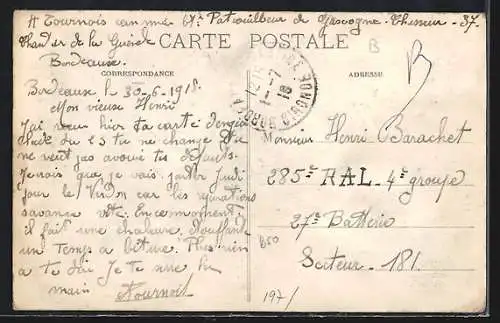 A Tournois 67e Patrouilleur de Gascogne. Chasseur - 37.
de la Gironde
Bordeaux.
CARTE POSTALE
CORRESPONDANCE
ADRESSE
B
B
Bordeaux le 30-6-1918.
Mon vieux Henri
J'ai reçu hier ta carte
du 23 tu ne change
ne veut pas avouer tes défauts.
que je vais partir Jeudi
jour le car les réparations
avance vite. En ce moment
il fait une chaleur étouffante
un temps a biture. Plus rien
a te dire Je te serre la
main Tournois
1-7
18
GIRONDE
Monsieur Henri Barachet
285e R.A.L. 4e groupe
27e Batterie
Secteur - 181.
B50
197/